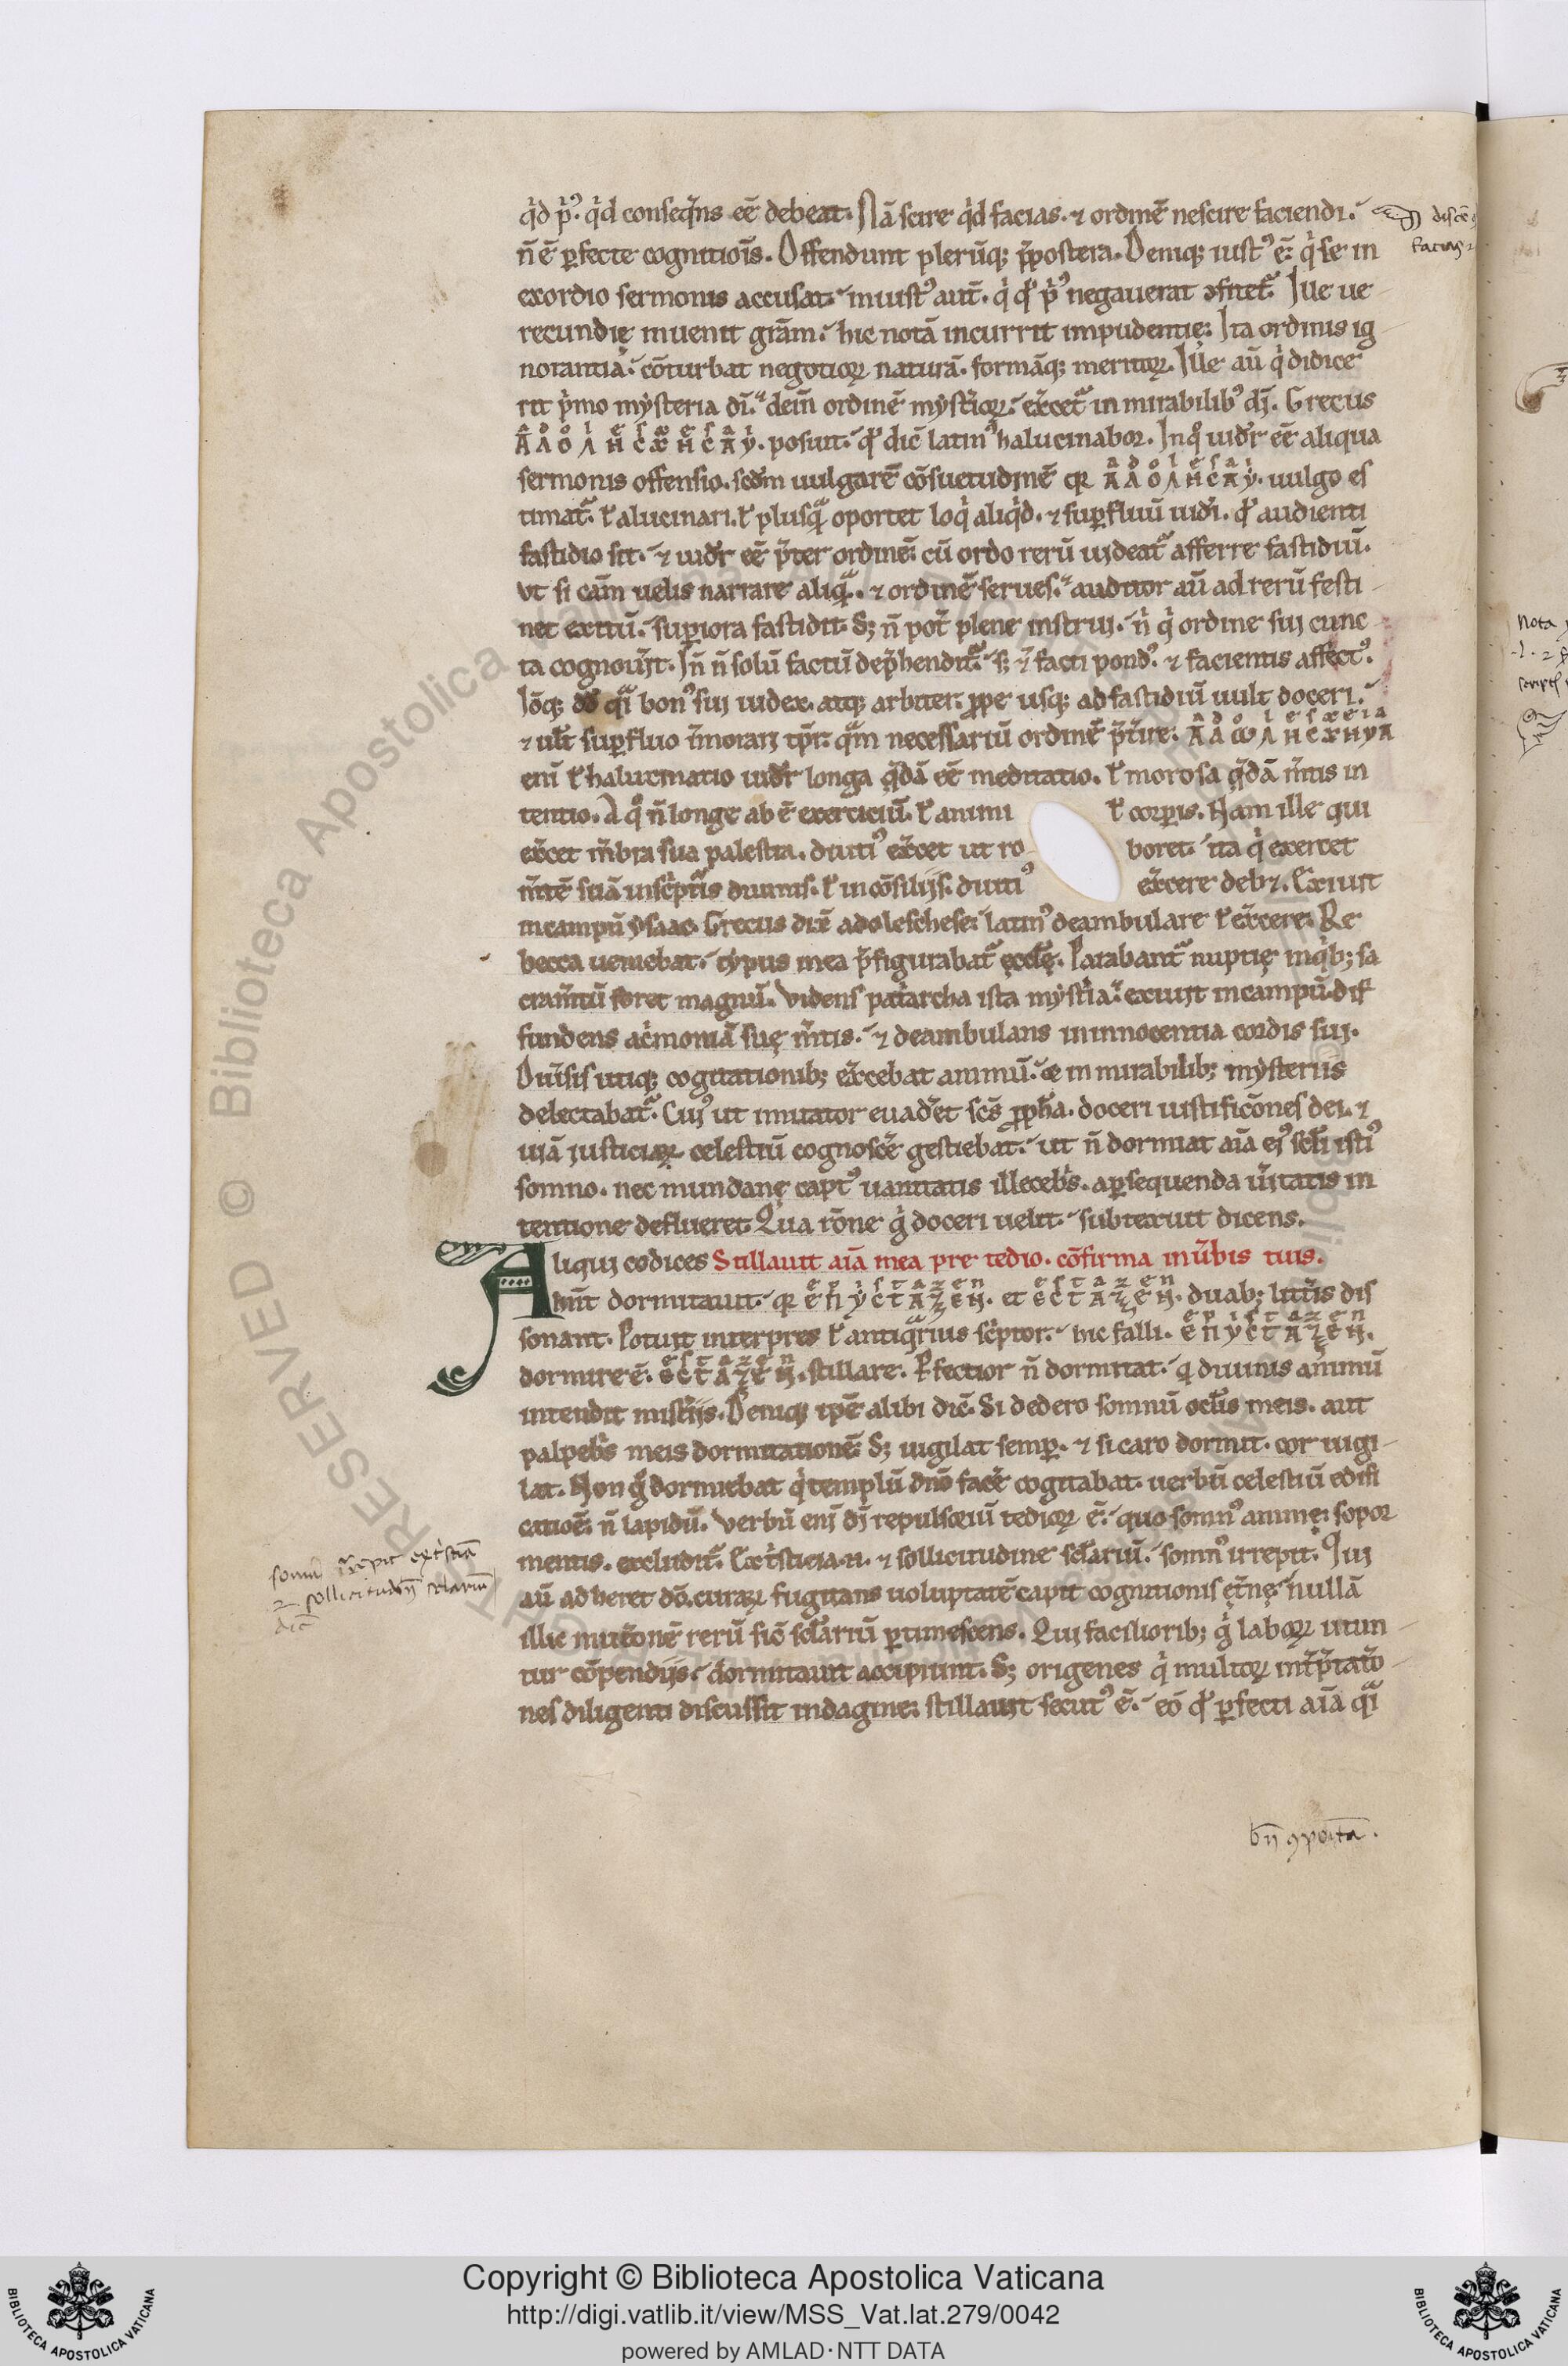 q̓d p̓ꝰ. q̓d conseq̄ns eē debeat. Nā scire q̓d facias. ⁊ ordinē nescire faciendi.
n̄ ē ꝑfecte cognitiōis. Offendunt plerūq; p̄postera. Deniq; iustꝰ ē. q̓ se in
exordio sermonis accusat. iniustꝰ aut̄. q̓ qđ p̓ꝰ negauerat ꝯfitet᷑. Ille ue
recundię inuenit grām. hic notā incurrit impudentię. Ita ordinis ig
norantia. cōturbat negotioꝝ naturā. formāq; meritoꝝ. Ille aū q̓ didice
rit p̓mo mysteria dī. dein̄ ordinē mysťioꝝ. ex̄cet᷑ in mirabilibꝰ dj̄. Grecus
posuit. qđ dic̄ latinꝰ halucinabor. In qͦ uid̄r eē aliqua
sermonis offensio. scd̄m uulgarē cōsuetudinē uulgo es
timat᷑. ł alucinari. ł plusq̄ oportet loq̓ aliq̓d. ⁊ suꝑfluū uid̄i. qđ audienti
fastidio sit. ⁊ uid̄r eē p̄ter ordinē. cū ordo rerū uideat᷑ afferre fastidiū.
Vt si cām uelis narrare aliq̄. ⁊ ordinē serues. auditor aū ad rerū festi
net exitū. suꝑiora fastidit. S; n̄ pot̄ plene instrui. n̓ q̓ ordine sui cunc
ta cognou̓it. In̄ n̄ solū factū dep̄hendit᷑. s; ⁊ facti pondꝰ. ⁊ facientis affectꝰ.
Iōq; qͣi bonꝰ sui iudex. atq; arbiter. ꝓpe usq; ad fastidiū uult doceri.
⁊ ult̄ suꝑfluo īmorari tp̄r. qͣm necessariū ordinē p̄t̓ire.
eni ł halucinatio uid̄r longa q̄dā eē meditatio. ł morosa q̄dā m̄tis in
tentio. A qͦ n̄ longe ab ē exerciciū. ł animi ł corꝑis. Nam ille qui
ex̄cet m̄bra sua palestra. diutiꝰ ex̄cet ut ro boret. ita q̓ exercet
m̄tē suā in sc̓ptͥs diuinis. ł in cōsiliis. diutiꝰ ex̄cere deb⁊. Exiuit
in campū ysaac. Grecus dix̄ adoleschese. latinꝰ deambulare ł ex̄cere. Re
becca ueniebat. typus in ea p̄figurabat᷑ eccl̄ę. Parabant᷑ nuptię in q̓b; sa
cram̄tū foret magnū. Videns pat̓archa ista mysťia. exiuit in campū. dif
fundens ac̓moniā suę m̄tis. ⁊ deambulans in innocentia cordis sui.
Diu̓sis utiq; cogitationib; ex̄cebat animū. in mirabilib; mysteriis
delectabat᷑. Cuiꝰ ut imitator euad̓et sc̄s ꝓph̄a. doceri iustificōnes dei. ⁊
uiā iusticiaꝝ celestiū cognosc̓e gestiebat. ut n̄ dormiat aīa eiꝰ sc̄li istiꝰ
somno. nec mundanę captꝰ uanitatis illeceb̓s. a ꝑsequenda u̓itatis in
tentione deflueret. Qua rōne g̓ doceri uelit. subtexuit dicens.
Aliqui codices Stillauit aīa mea pre tedio. cōfirma in u̓bis tuis.
hn̄t dormitauit. et duab; litt̓is dis
sonant. Potuit interpres ł antiq̄rius sc̓ptor. hic falli.
dormire ē. stillare. Ꝑfectior n̄ dormitat. q̓ diuinis animū
intendit mist̓iis. Deniq; ipē alibi dic̄. Si dedero somnū ocl̄is meis. aut
palpeb̓s meis dormitationē. S; uigilat semꝑ. ⁊ si caro dormit. cor uigi
lat. Non g̓ dormiebat q̓ templū dn̄o fac̓e cogitabat. uerbū celestiū edifi
catiōe. n̄ lapidū. Verbū eni dī repulsoriū tedioꝝ ē. quo somnꝰ animę. sopor
mentis. excludit᷑. Ex t̓sticia .n. ⁊ sollicitudine sc̄lariū. somnꝰ irrepit. Qui
aū adheret dō. curaꝝ fugitans uoluptatē capit cognitionis et̓nę. nullā
illic mutōnē rerū sic̄ sc̄lariū ꝑtimescens. Qui facilioribꝫ g̓ laboꝝ utun
tur cōpendiis. dormitauit accipiunt. S; origenes q̓ multoꝝ int̓p̓tatō
nes diligenti discussit indagine. stillauit secutꝰ ē. eō qđ ꝑfecti aīa qͣi
somnꝰ irrepit ex t̓stitia
⁊ sollicitudine sclariū
dic̄
Nota
Copyright © Biblioteca Apostolica Vaticana
http://digi.vatlib.it/view/MSS_Vat.lat.279/0042
powered by AMLAD·NTT DATA
BIBLIOTECA APOSTOLICA VATICANA
BIBLIOTECA APOSTOLICA VATICANA